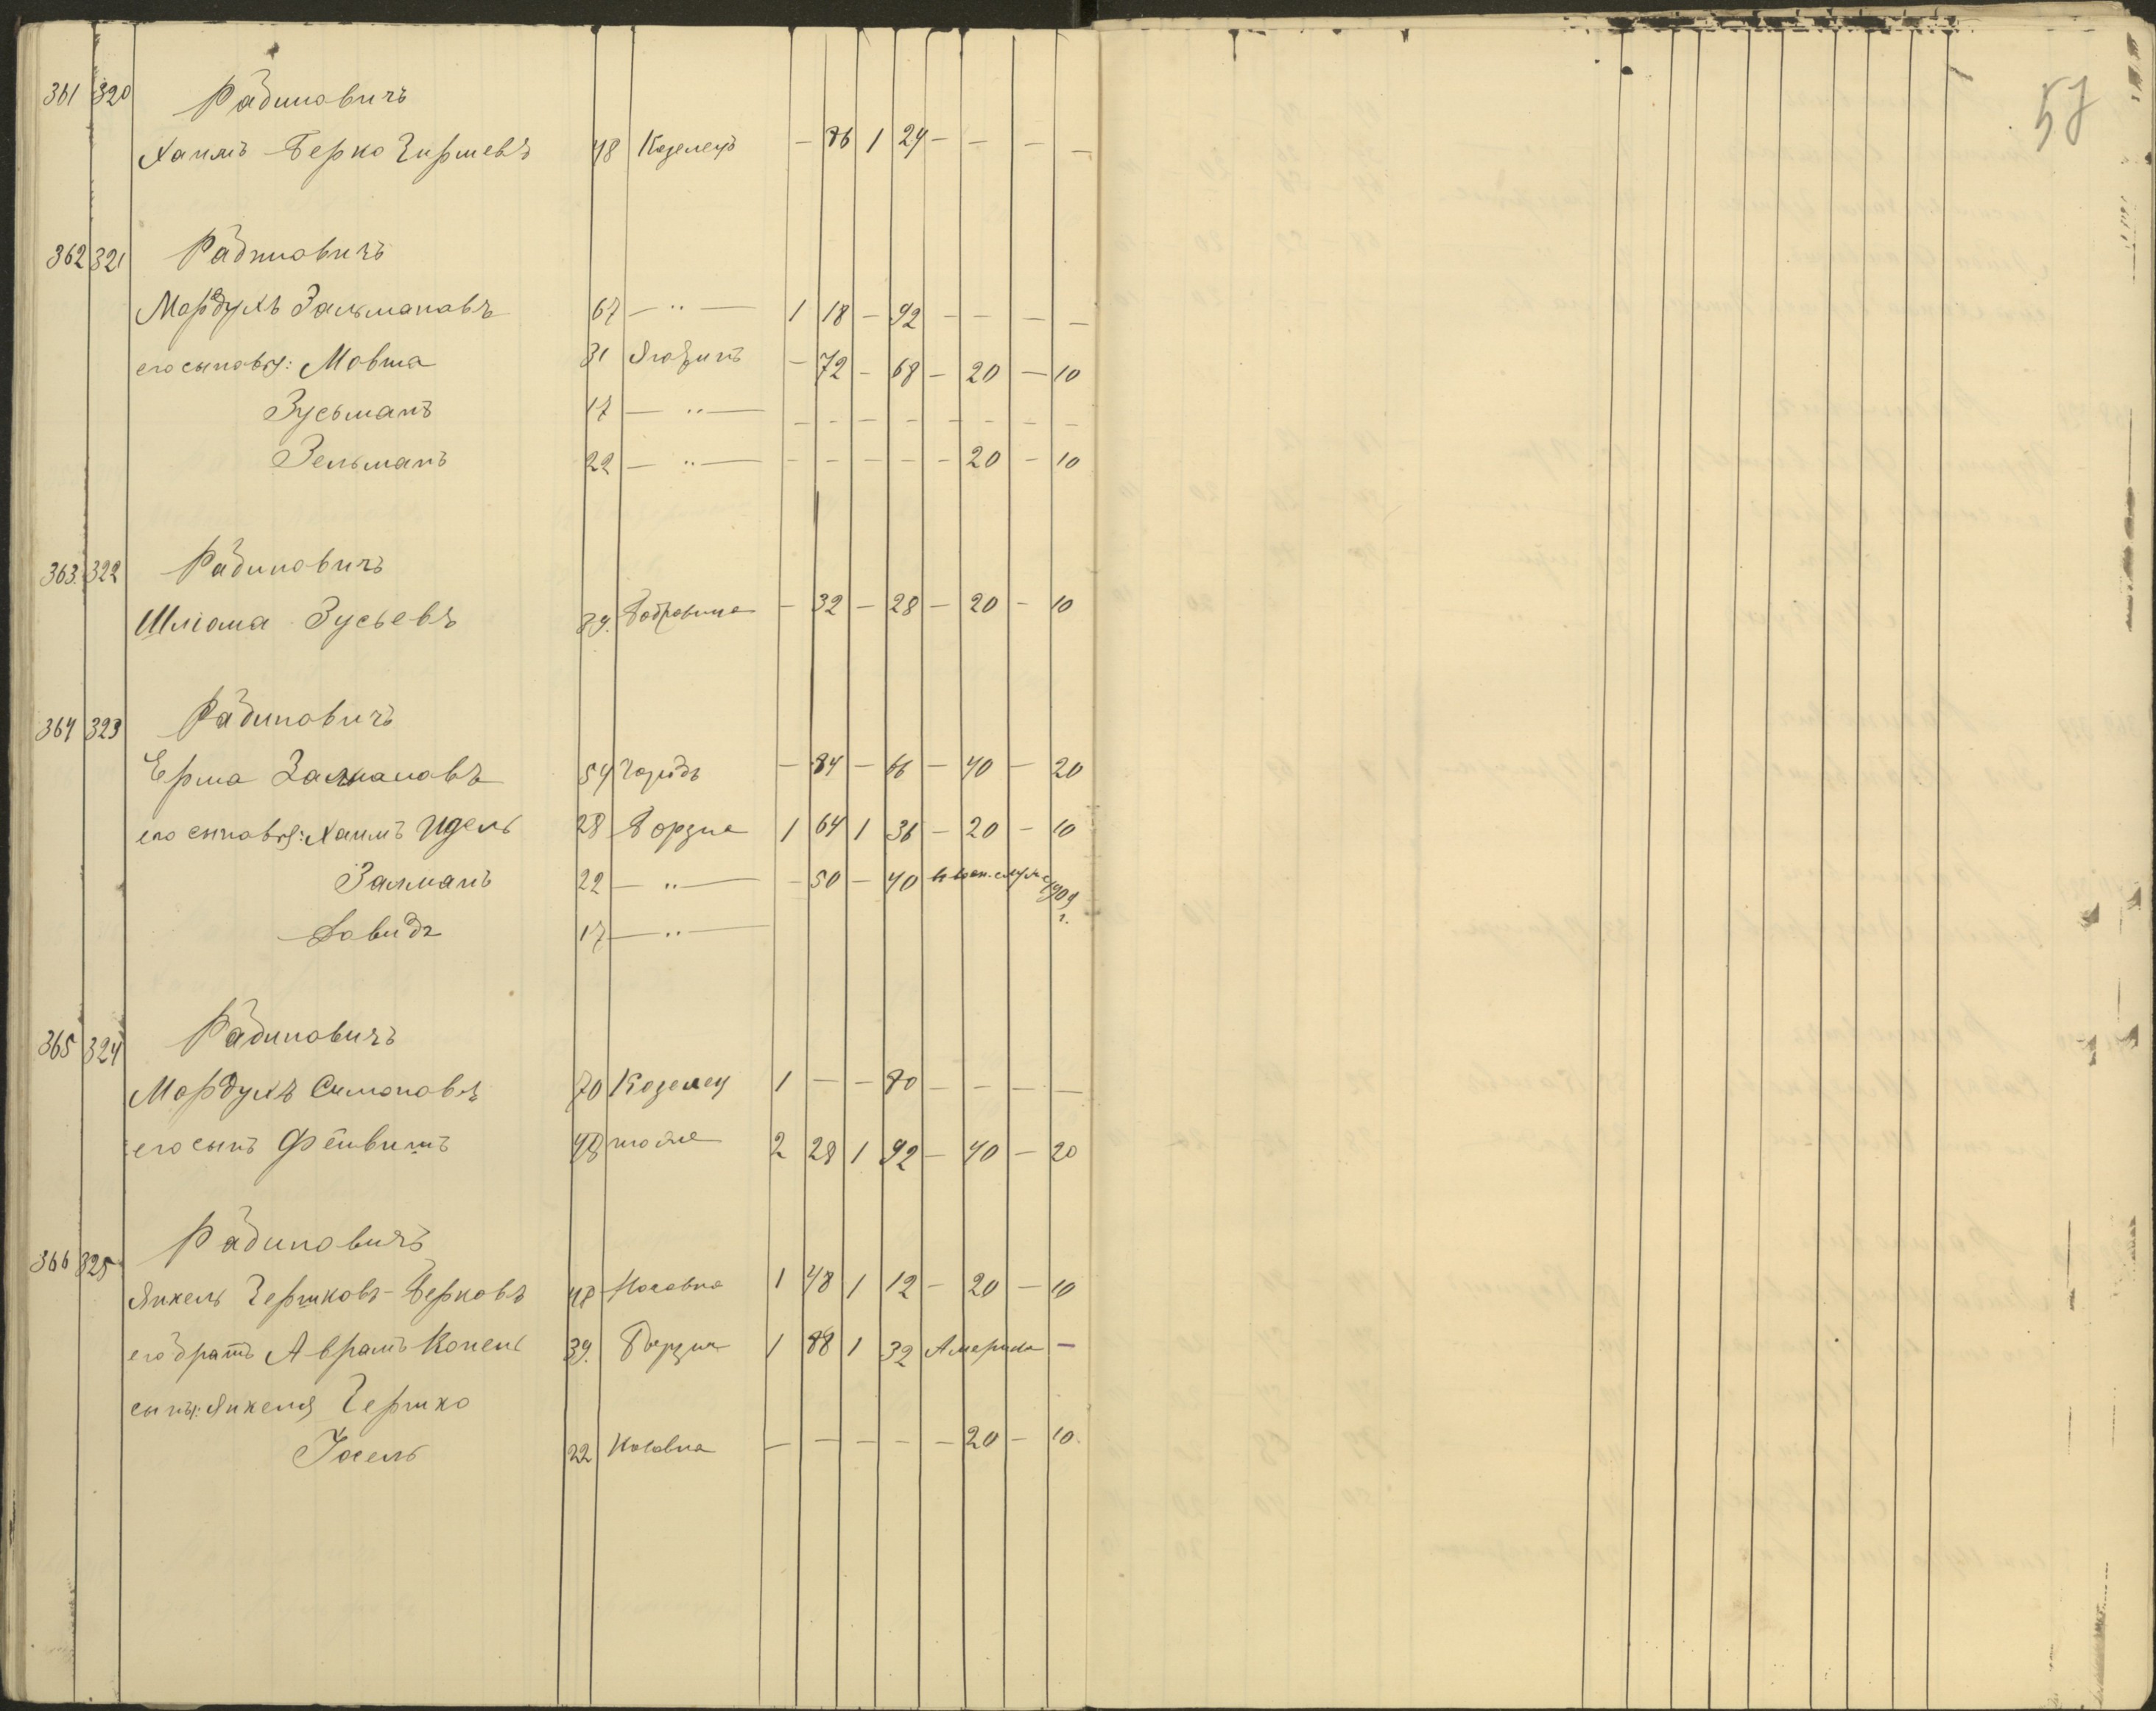 57
361 320 Рабиновичъ
Хаимъ-Берко Гиршевъ 48 Козелецъ — 86 1 24 — — — —
362 321 Рабиновичъ
Мордухъ Залмановъ 67 — " — 1 18 — 92 — — — —
его сыновья: Мовша 31 — 72 — 68 — 20 — 10
Зусьманъ 17 — " — — — — — — — — —
Зельманъ 22 — " — — — — — — 20 — 10
363. 322 Рабиновичъ
Шліома Зусьевъ 39. Бобровица — 32 — 28 — 20 — 10
364 323 Рабиновичъ
Ерма Залмановъ 54 — 84 — 66 — 40 — 20
его сыновья: Хаимъ Идель 28 Борзна 1 64 1 36 — 20 — 10
Залманъ 22 — " — — 50 — 40 1909 г.
Довидъ 17 — " —
365 324 Рабиновичъ
Мордухъ Симоновъ 70 Козелец 1 — — 80 — — — —
его сынъ Фейвишъ 48 тоже 2 28 1 92 — 40 — 20
366 325 Рабиновичъ
Янкель Гершковъ-Берковъ 48 Носовка 1 48 1 12 — 20 — 10
его братъ Аврамъ Копель 39. Борзна 1 88 1 32 Америка —
сыны: Янкеля Гершко
Іосель 22 Носовка — — — — — 20 — 10.